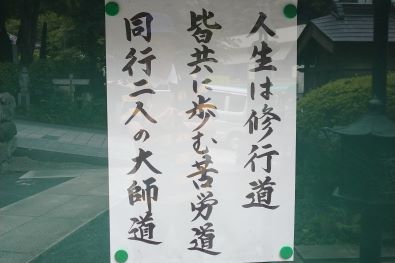 人生は修行道
皆共に歩む苦労道
同行二人の大師道